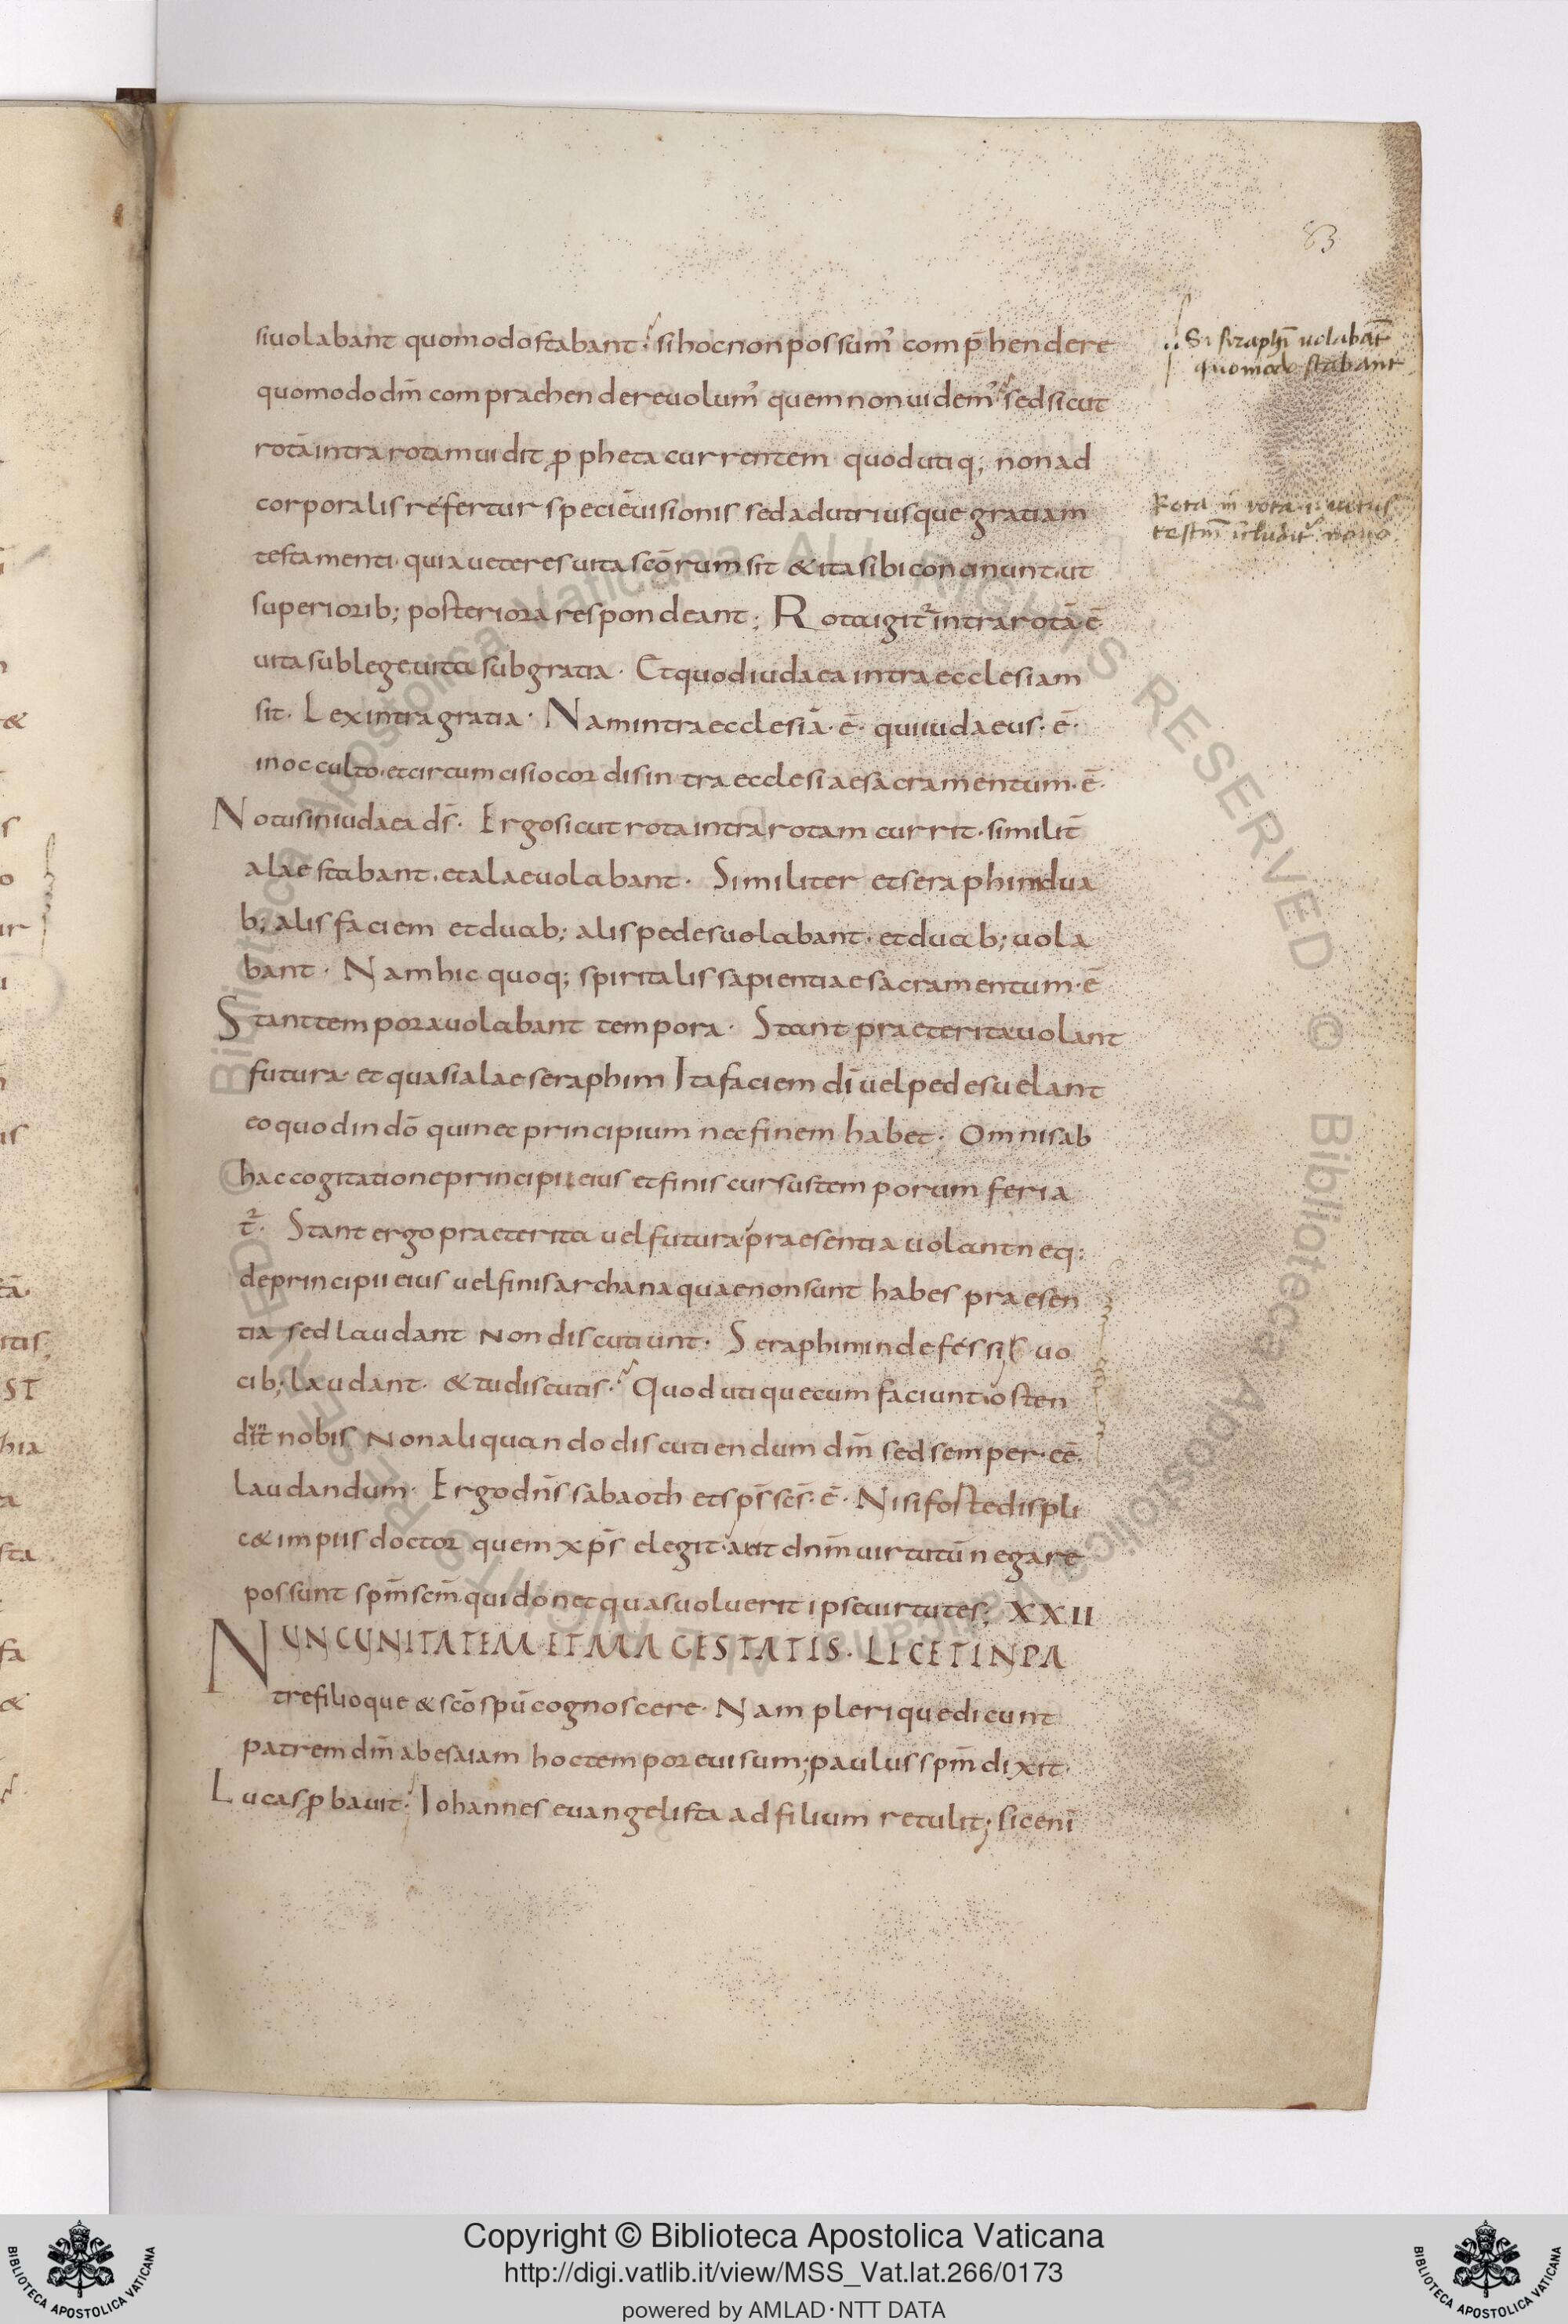 83
siuolabant quomodostabant. sihocnonpossum' comp̄hendere
quomododm̄ compraehendereuolum' quemnonuidem' sedsicut
rotāintrarotamuidit ꝓpheta currentem quodutiq; nonad
corporalisrefertur speciēuisionis sedadutriusque gratiam
testamenti· quiaueteresuitascōrumsit &itasibiconcinunt·ut
superiorib; posteriorarespondeant; Rotaigit̄ intrarotā·ē
uitasublegeuita subgratia· Etquodiudaea intraecclesiam
sit· Lexintragratia· Namintraecclesiā·ē· quiiudaeus·ē·
inocculto·etcircumcisiocordisintra ecclesiaesacramentum·ē·
Notusiniudaea ds̄· Ergosicut rotaintrarotam currit·similit̄
alae stabant·etalaeuolabant· Similiter etseraphimdua
b; alisfaciem etduab; alispedesuolabant·etduab;uola
bant· Namhic quoq; spiritalissapientiaesacramentum·ē
Stanttemporauolabant tempora· Stant praeteritauolant
futura· etquasialaeseraphim Itafaciem dī uelpedesuelant
eoquodindō quinecprincipium necfinem habet· Omnisab
haccogitationeprincipii eius etfinis cursustemporum feria
t̄· Stantergopraeterita uelfutura praesentiauolantneq;
deprincipii eius uelfinisarchanaquaenonsunt habes praesen
tia sedlaudant nondiscutiunt· Seraphimindefessis uo
cib; laudant· &tudiscutis· Quodutiquecumfaciunt osten
dit nobis nonaliquandodiscutiendum dm̄ sedsemper·eē·
laudandum· Ergodn̄ssabaoth etsps̄scs̄·ē· Nisifostedispli
c&impiisdoctor quem xps̄ elegit·aut dnm̄uirtutūnegare
possunt spm̄scm̄quidonetquasuoluerit ipseuirtutes; XXII
NUNCUNITATEM ETMAGESTATIS· LICETINPA
trefilioque &scōspūcognoscere· Nam pleriquedicunt
patremdm̄ abesaiam hoctemporeuisum;paulusspm̄dixit·
Lucasꝓbauit· Iohannes euangelista adfilium retulit; sicenī
.. Si seraphī uolabāt
quomodo stabant
Rota in rota·i· uetus
testm̄ īcludit' nouo
Copyright © Biblioteca Apostolica Vaticana
http://digi.vatlib.it/view/MSS_Vat.lat.266/0173
powered by AMLAD·NTT DATA